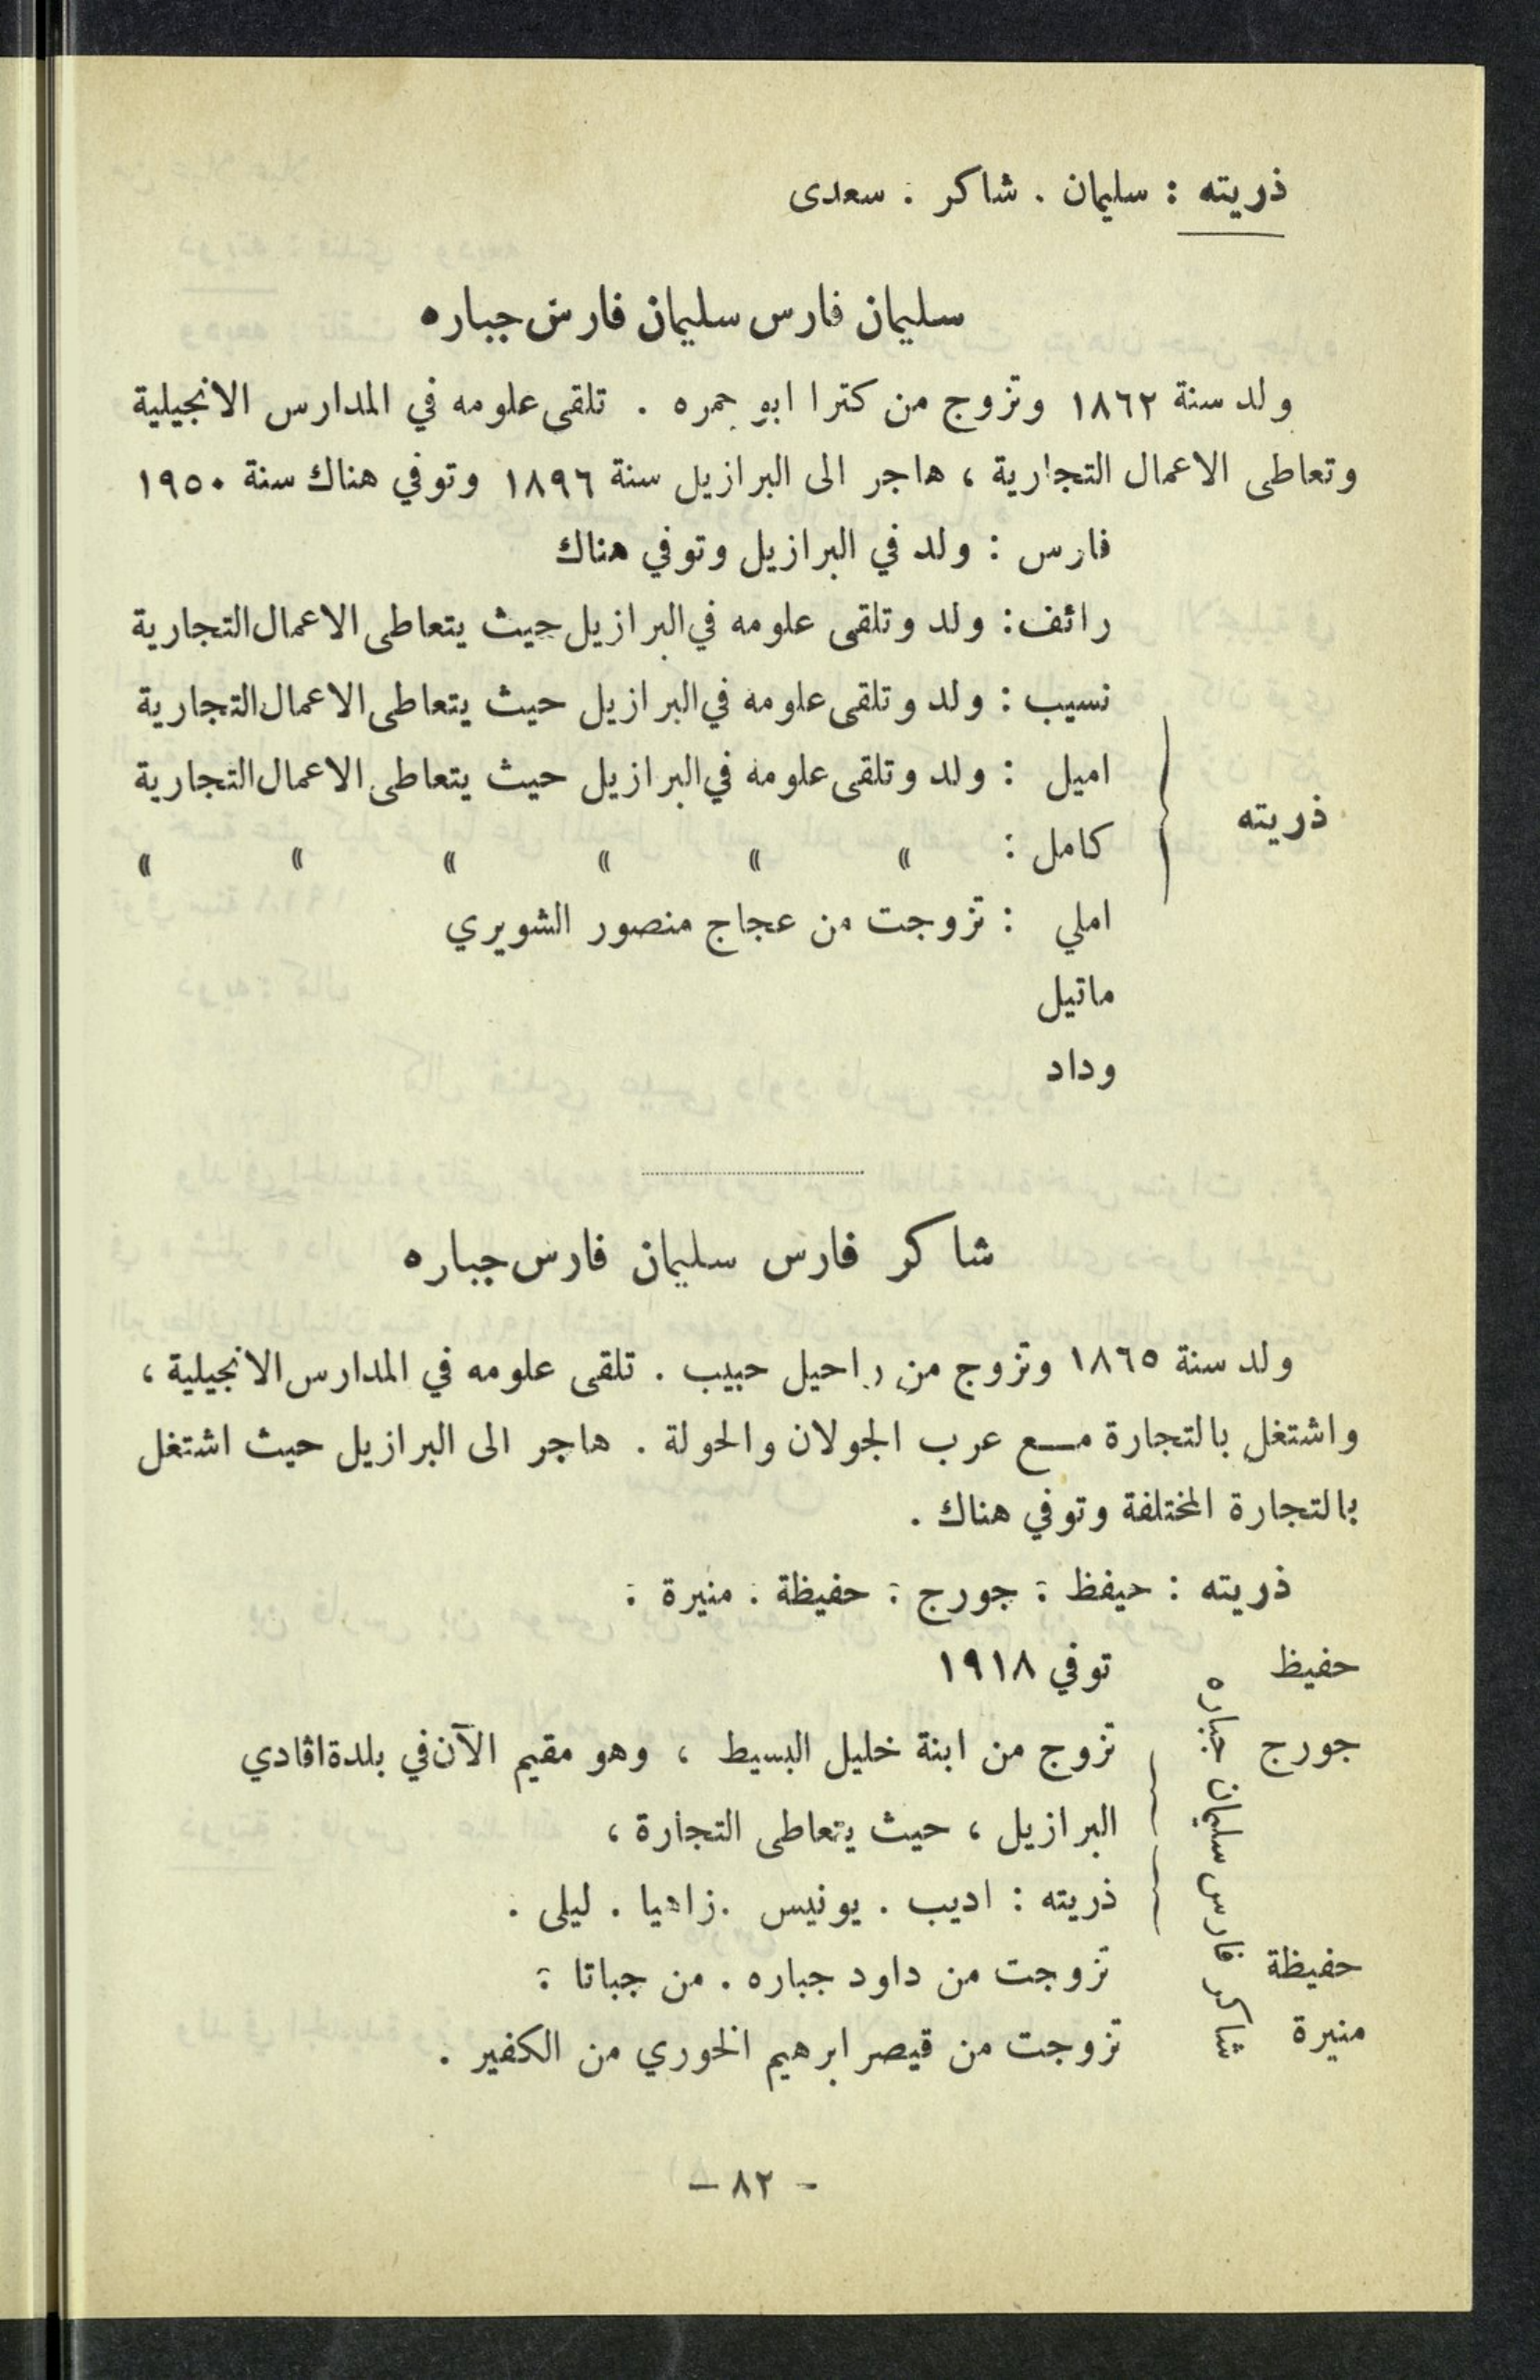 ذريته : سليمان . شاكر . سعدى
سليمان فارس سليمان فارس جباره
ولد سنة ١٨٦٢ وتزوج من كترا ابو جمره . تلقى علومه في المدارس الانجيلية
وتعاطى الاعمال التجارية ، هاجر الى البرازيل سنة ١٨٩٦ وتوفي هناك سنة ١٩٥٠
فارس : ولد في البرازيل وتوفي هناك
رائف : ولد وتلقى علومه في البرازيل حيث يتعاطى الاعمال التجارية
نسيب : ولد وتلقى علومه في البرازيل حيث يتعاطى الاعمال التجارية
اميل : ولد وتلقى علومه في البرازيل حيث يتعاطى الاعمال التجارية
ذريته
كامل : » » » » » »
املي : تزوجت من عجاج منصور الشويري
ماتيل
وداد
شاكر فارس سليمان فارس جباره
ولد سنة ١٨٦٥ وتزوج من راحيل حبيب . تلقى علومه في المدارس الانجيلية ،
واشتغل بالتجارة مع عرب الجولان والحولة . هاجر الى البرازيل حيث اشتغل
بالتجارة المختلفة وتوفي هناك .
ذريته : حيفظ : جورج : حفيظة : منيرة :
شاكر فارس سليمان جباره
حفيظ توفي ١٩١٨
جورج تزوج من ابنة خليل البسيط ، وهو مقيم الآن في بلدة اڤادي
البرازيل ، حيث يتعاطى التجارة ،
ذريته : اديب . يونيس . زاهيا . ليلى .
حفيظة تزوجت من داود جباره . من جباتا :
منيرة تزوجت من قيصر ابرهيم الخوري من الكفير .
– ٨٢ –